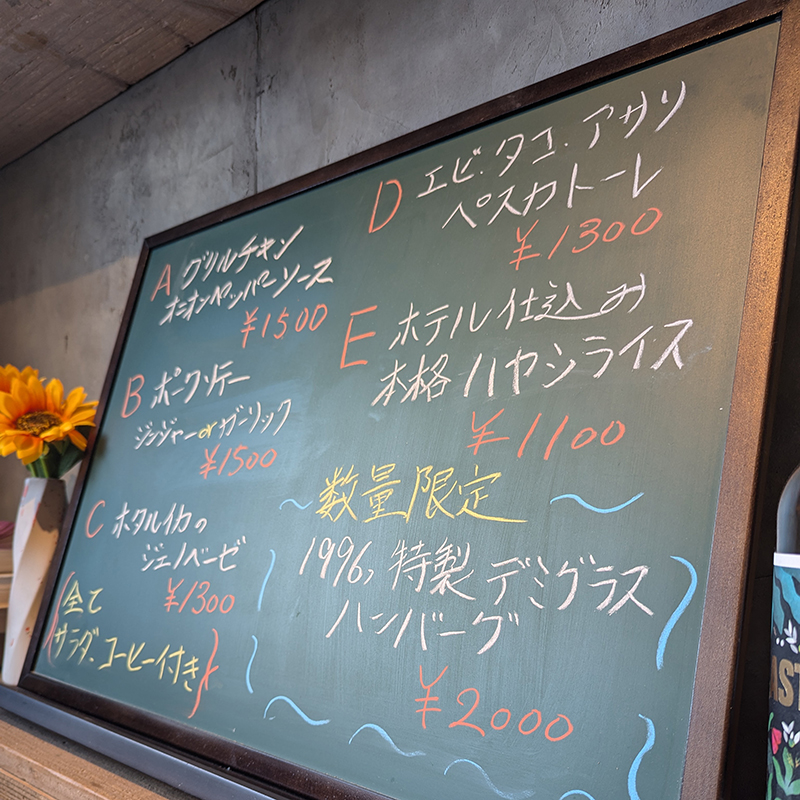 A グリルチキン
オニオンペッパーソース
¥1500
B ポークソテー
ジンジャーorガーリック
¥1500
C ホタルイカの
ジェノベーゼ
¥1300
全て
サラダ、コーヒー付き
D エビ.タコ.アサリ
ペスカトーレ
¥1300
E ホテル仕込み
本格ハヤシライス
¥1100
~数量限定~
1996, 特製デミグラス
ハンバーグ
¥2000